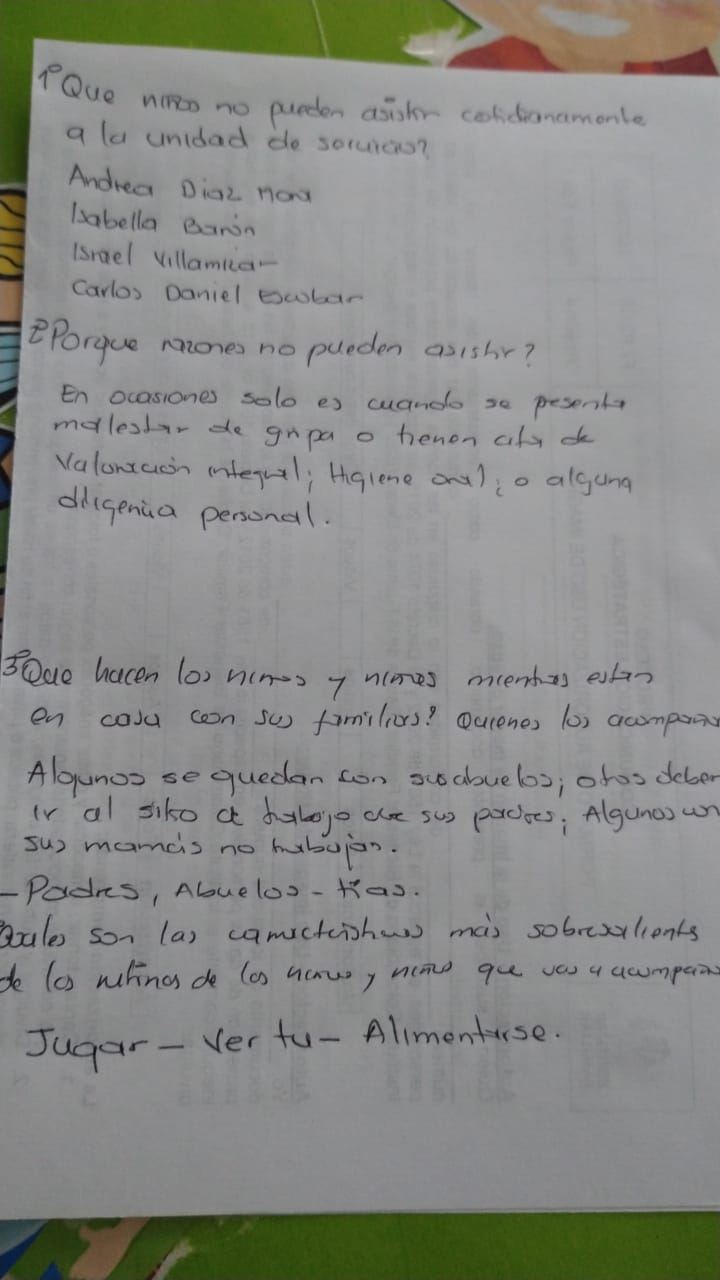 1º Que niños no pueden asistir cotidianamente
a la unidad de servicio?
Andrea Diaz Mora
Isabella Barón
Israel Villamizar
Carlos Daniel Escobar
2º Porque razones no pueden asistir?
En ocasiones solo es cuando se presenta
malestar de gripa o tienen cita de
Valoración integral; Higiene oral; o alguna
diligencia personal.
3º Que hacen los niños y niñas mientras estan
en casa con sus familias? Quienes los acompañan
Algunos se quedan con sus abuelos; otros deben
ir al sitio de trabajo de sus padres; Algunos con
sus mamás no trabajan.
- Padres, Abuelos - tias.
Cuales son las caracteristicas más sobresalientes
de las rutinas de los niños y niñas que vas a acompañar
Jugar - Ver tv - Alimentarse.